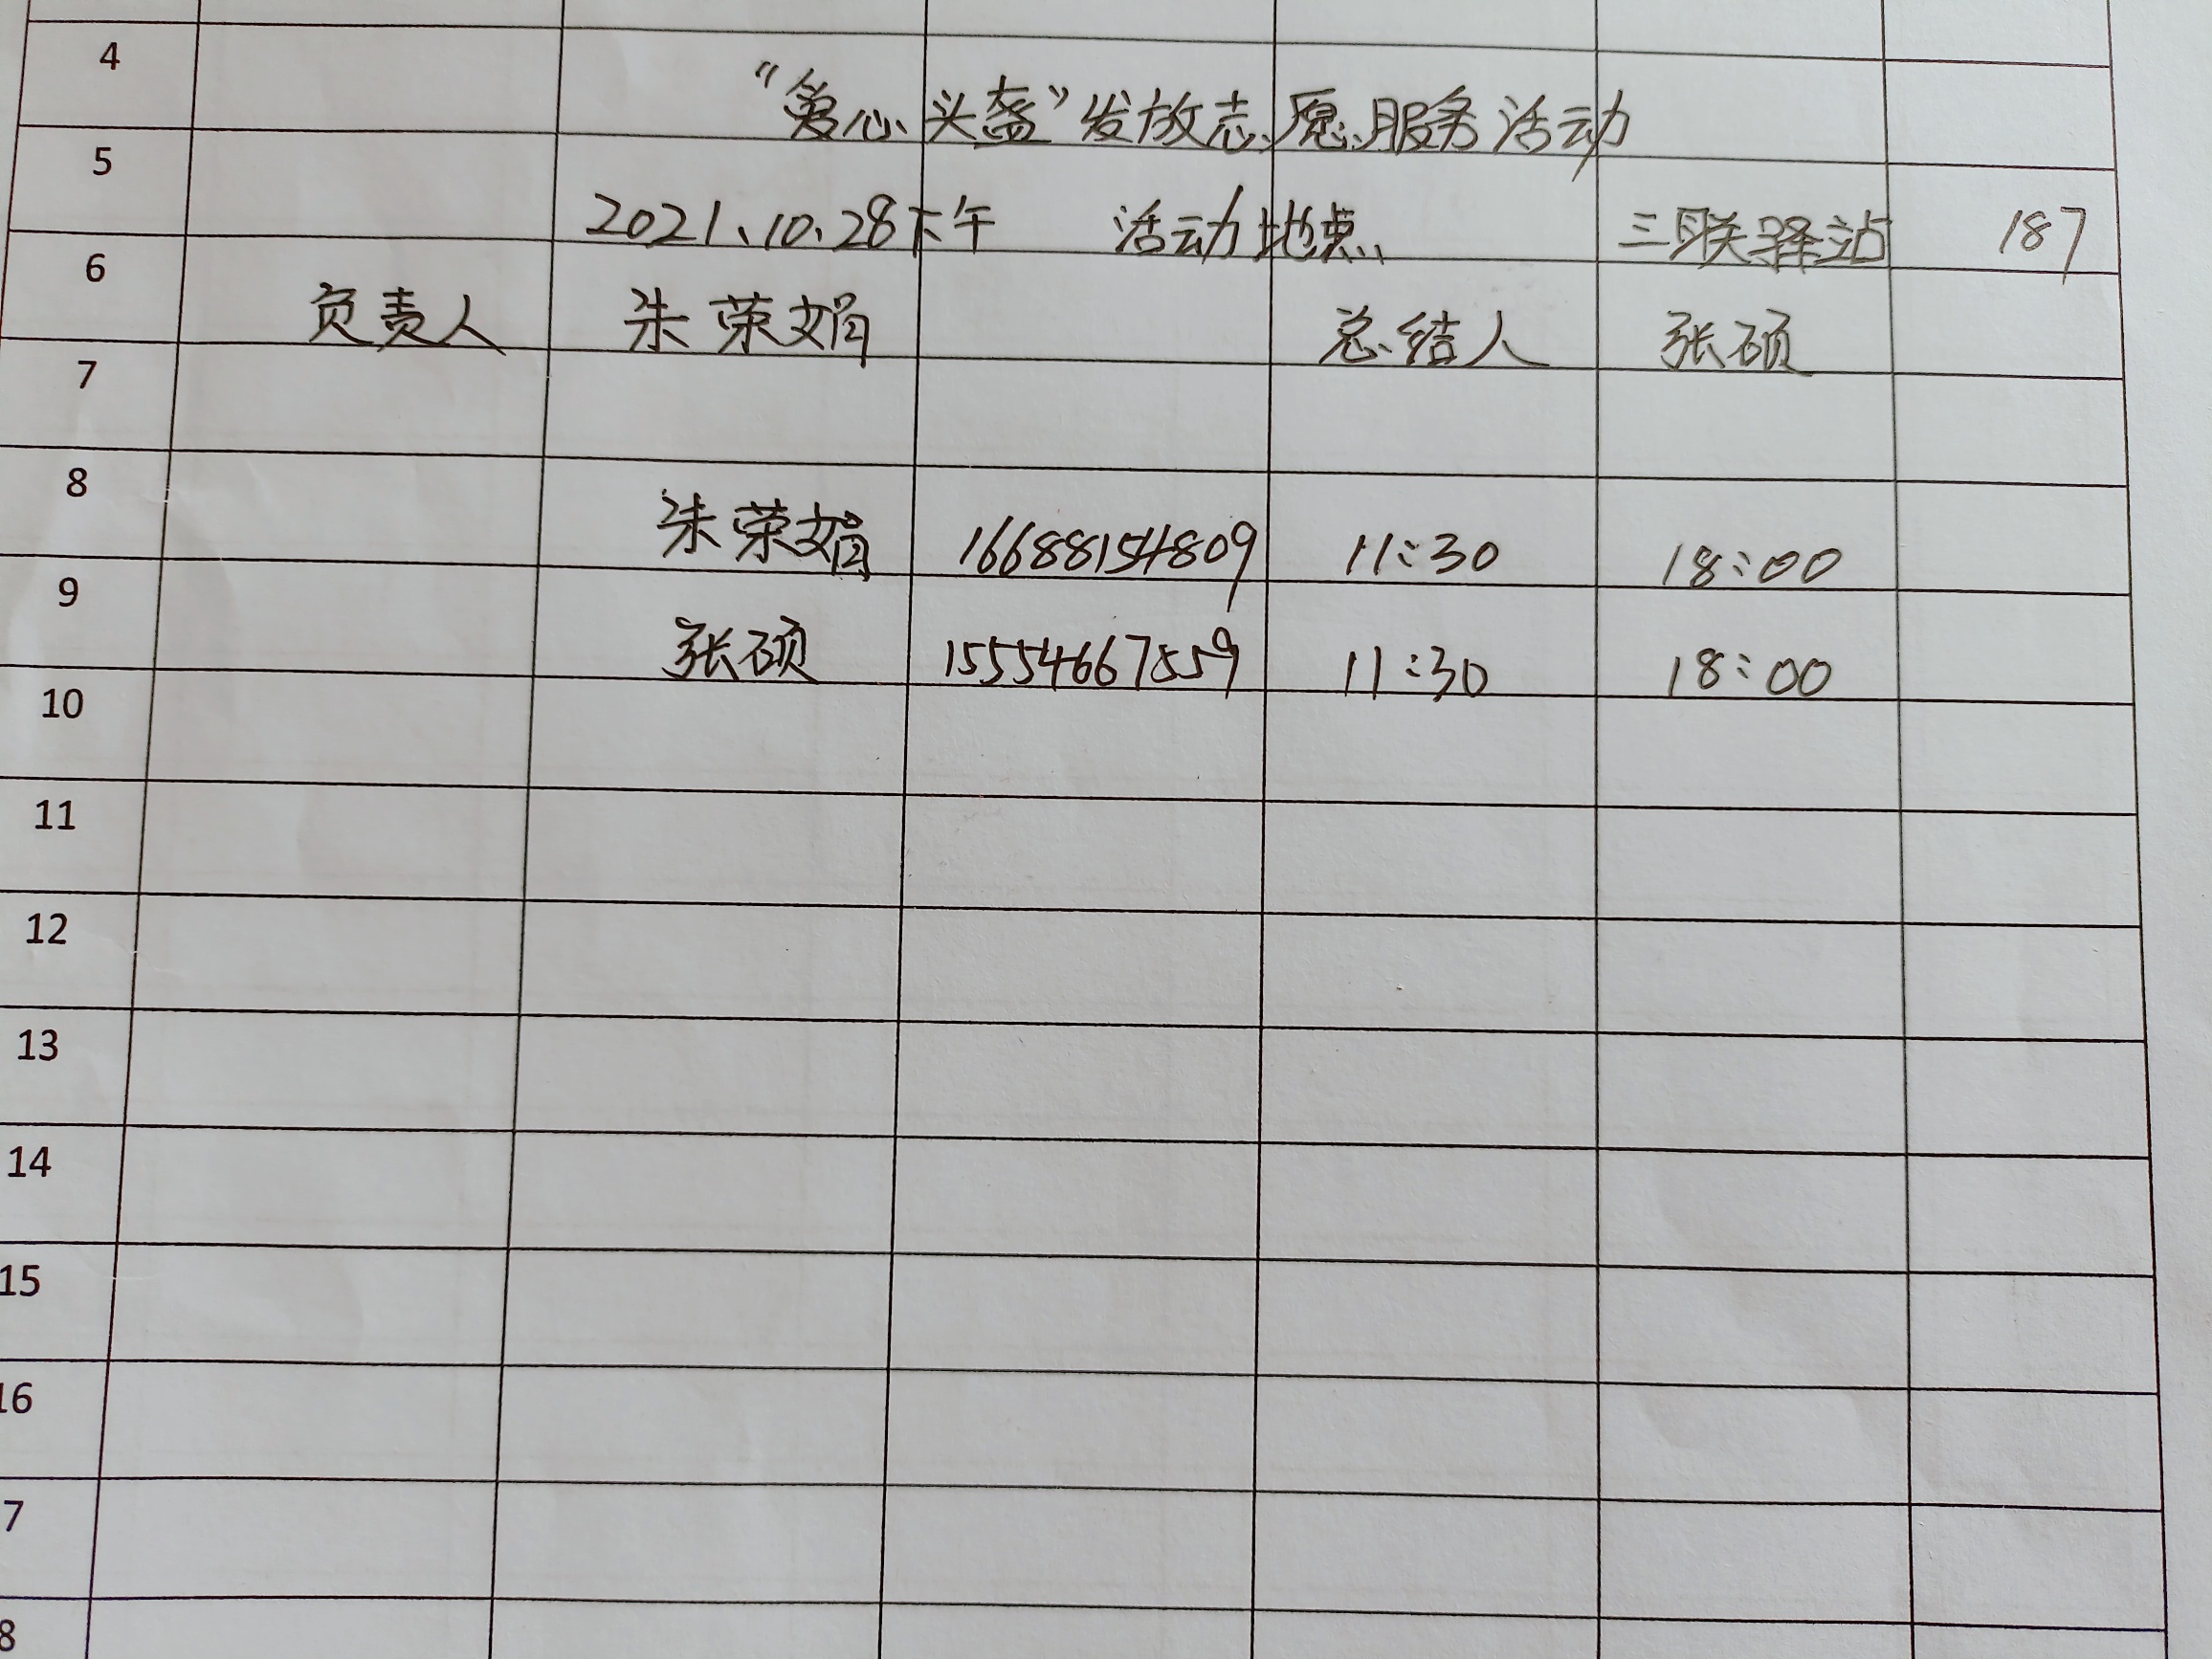 4
“爱心头盔”发放志愿服务活动
5
2021、10、28下午 活动地点 三联驿站 187
6
负责人 朱荣娟 总结人 张硕
7
8
朱荣娟 16688154809 11:30 18:00
9
张硕 15554667559 11:30 18:00
10
11
12
13
14
15
16
7
8